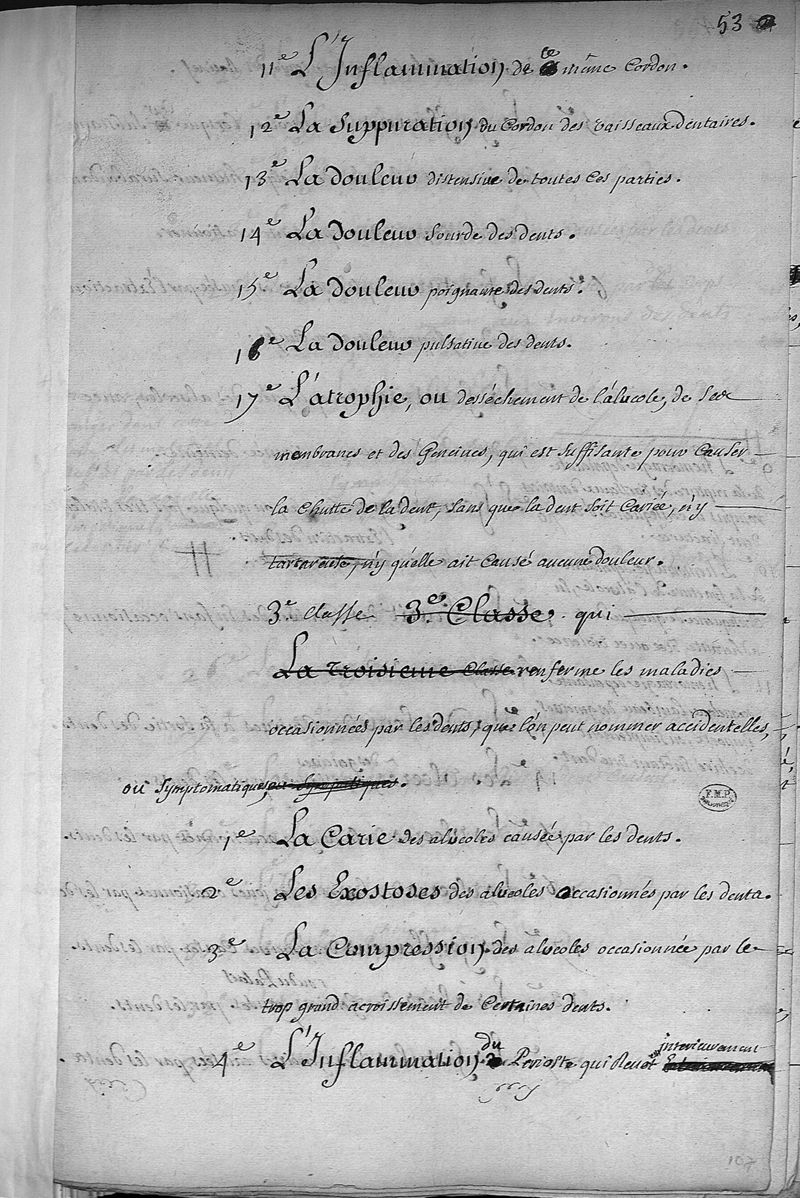 53
11e L'Inflammation de ce même Cordon.
12e La Suppuration du Cordon des vaisseaux dentaires.
13e La Douleur distensive de toutes Ces parties.
14e La Douleur Sourde des dents.
15e La Douleur poignante des dents.
16e La Douleur pulsative des dents.
17e L'atrophie, ou desséchement de l'alvéole, de Ses
membranes et des Gencives, qui est Suffisante pour Causer
la Chutte de la dent, Sans que la dent Soit Cariée, n'y
tartareuse, n'y qu'elle ait Causé aucune douleur.
3e Classe 3e. Classe qui
La troisieme Classe renferme les maladies
occasionnées par les dents, que l'on peut nommer accidentelles,
ou Symptomatiques, ou Sympatiques.
1e La Carie des alvéoles causée par les dents.
2e Les Exostoses des alvéoles occasionnés par les dents.
3e La Compression des alvéoles occasionnée par le
trop grand acroissement de Certaines dents.
interieurement
4e L'Inflammation du Perioste qui Revêt
107